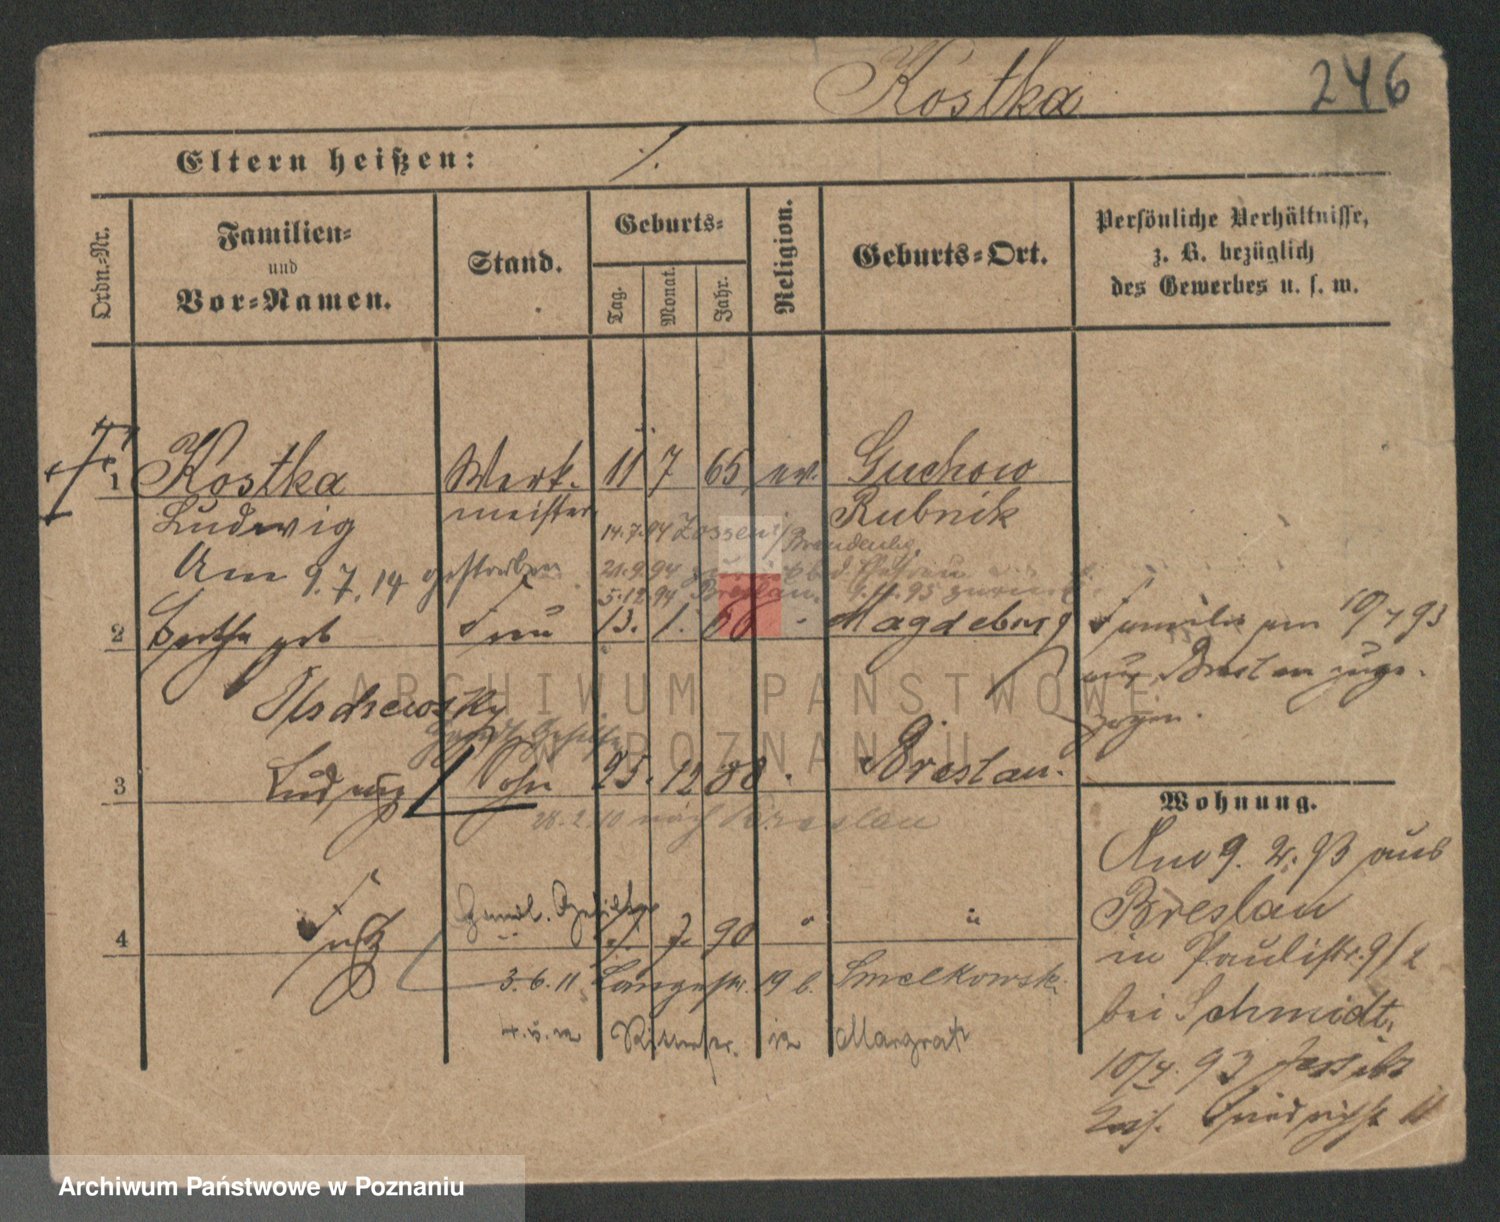 Kostka 246
Eltern heißen: ./.
Ordn.-Nr.
Familien-
und
Vor-Namen.
Stand.
Geburts-
Tag.
Monat.
Jahr.
Religion.
Geburts-Ort.
Persönliche Verhältnisse,
z. B. bezüglich
des Gewerbes u. s. w.
1 Kostka Werk- 11 7 65 ev. Guchow
Ludwig meister Rubnik
14.7.94 Zossen i/Brandenbg.
Am 9.7.14 gestorben
21.9.94
5.12.94 Breslau. 9.11.95 zurück
2 Bertha geb Frau 13. 1. 66 Magdeburg
Familie am 10/4 93
aus Breslau zuge-
zogen.
Handl. Gehilfe
3 Ludwig Sohn 25. 12 88 Breslau.
28.2.10 nach Breslau
Wohnung.
Am 9. 2. 93 aus
Breslau
in Paulistr. 9/2
bei Schmidt,
10/4. 93
Friedrichstr 11
4 Handl. Gehilfe 7. 90 "
3.6.11 Langestr. 19 b. Smelkowski
Ritterstr. 12 Margraf
ARCHIWUM PAŃSTWOWE
W POZNANIU
Archiwum Państwowe w Poznaniu